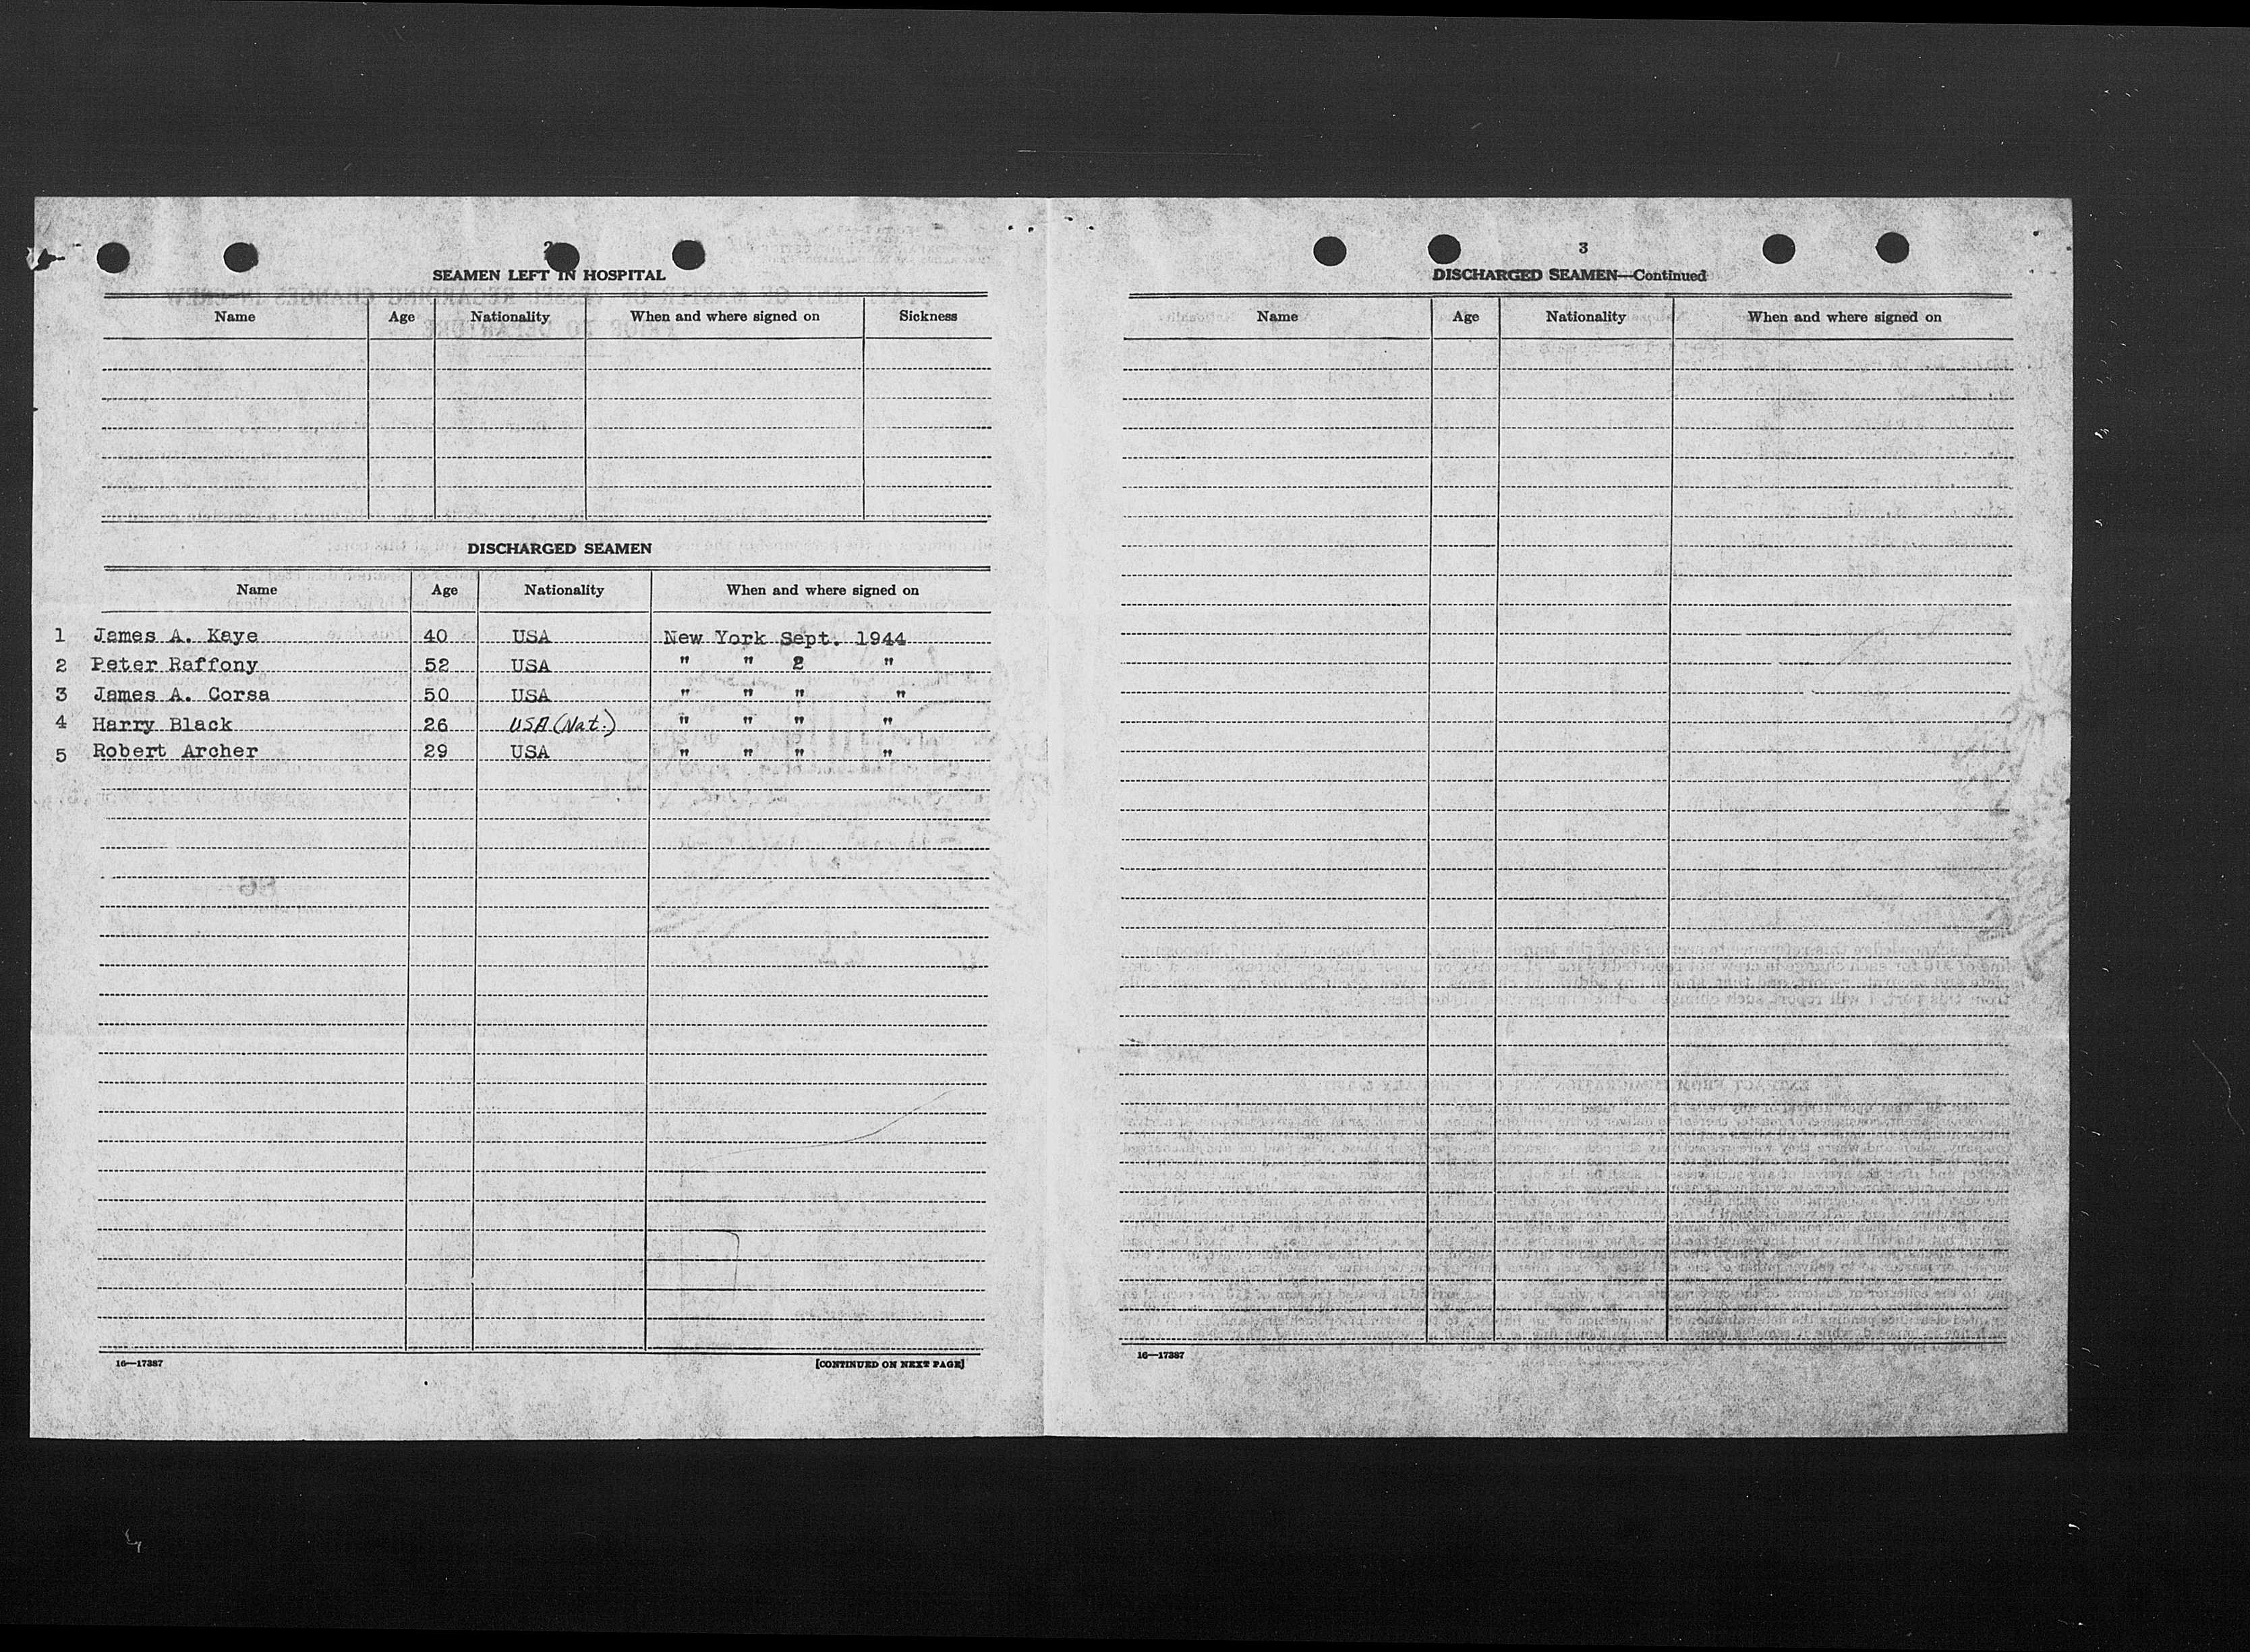 2
SEAMEN LEFT IN HOSPITAL
Name Age Nationality When and where signed on Sickness
DISCHARGED SEAMEN
Name Age Nationality When and where signed on
1 James A. Kaye 40 USA New York Sept. 1944
2 Peter Raffony 52 USA " " 2 "
3 James A. Corsa 50 USA " " " "
4 Harry Black 26 USA (Nat.) " " " "
5 Robert Archer 29 USA " " " "
16—17387 [CONTINUED ON NEXT PAGE]
3
DISCHARGED SEAMEN—Continued
Name Age Nationality When and where signed on
16—17387